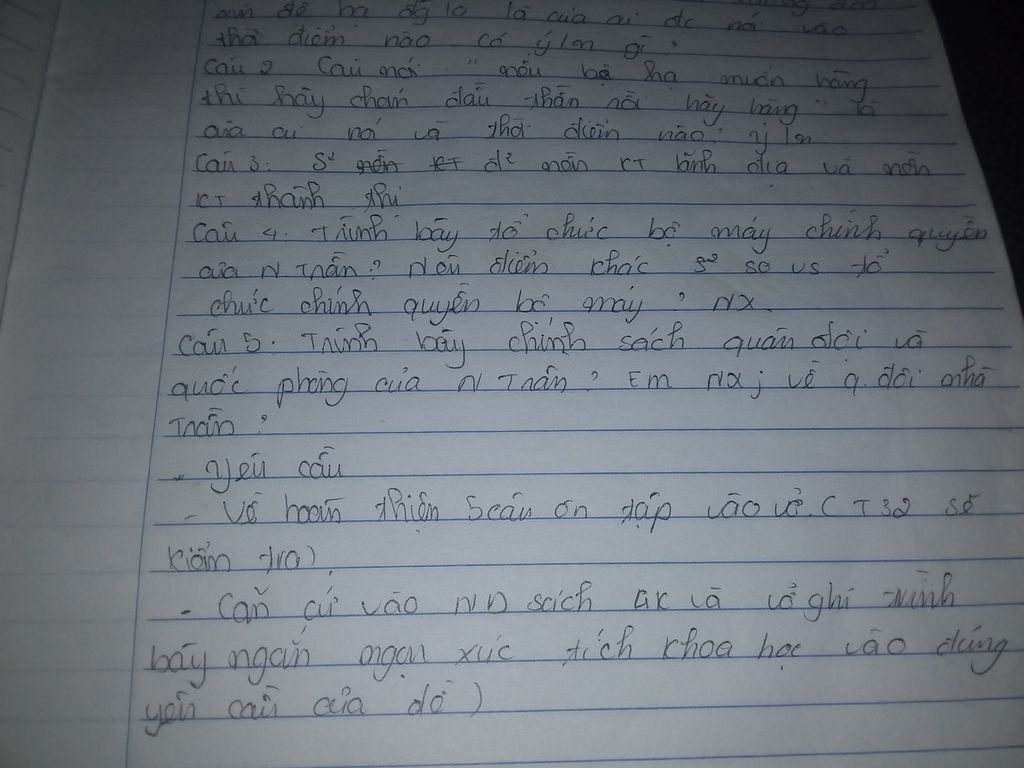 xin bệ hạ đg lo là của ai đc nói vào
thời điểm nào có ý/n gì?
Câu 2 Câu nói " nếu bệ hạ muốn hàng
thì hãy chém đầu thần rồi hãy hàng" là
của ai nói và thời điểm nào. ý/n
Câu 3: S² nền KT đ² nền KT lãnh địa và nền
KT thành thị
Câu 4. Trình bày tổ chức bộ máy chính quyền
của N Trần? Nêu điểm khác s² so vs tổ
chức chính quyền bộ máy ? NX
Câu 5. Trình bày chính sách quân đội và
quốc phòng của N Trần? Em NX j về q.đội nhà
Trần?
- Yêu cầu
- Về hoàn thiện 5 câu ôn tập vào vở. ( T32 sẽ
kiểm tra)
- Căn cứ vào ND sách GK và vở ghi trình
bày ngắn ngọn xúc tích khoa học vào đúng
yêu cầu của đề )